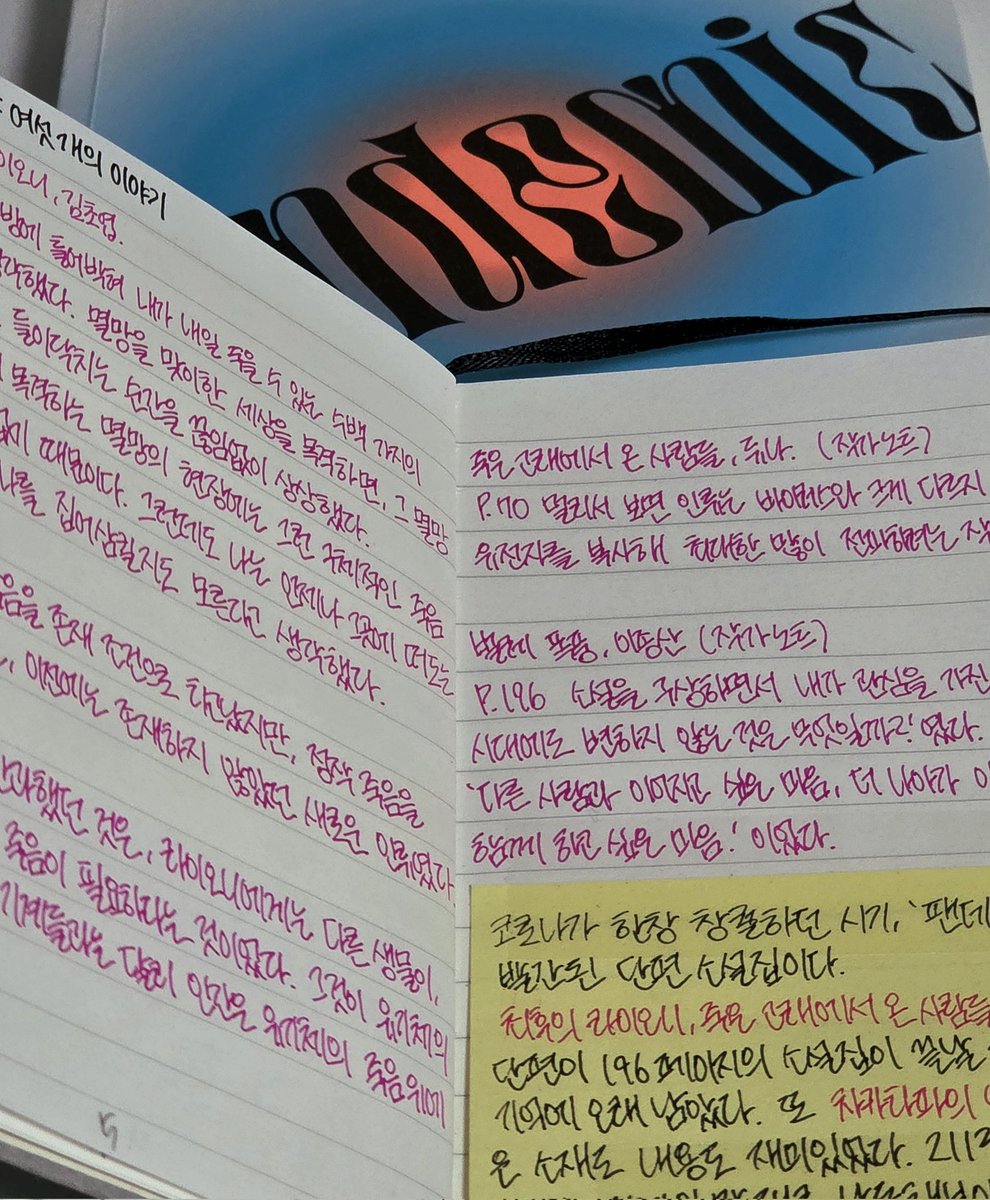 ndemic
여섯 개의 이야기
이오니, 김초엽.
방에 틀어박혀 내가 내일 죽을 수 있는 수백 가지의
각했다. 멸망을 맞이한 세상을 목격하면, 그 멸망
들이닥치는 순간을 끊임없이 상상했다.
목격하는 멸망의 현장에는 그런 극적인 죽음
없기 때문이다. 그런데도 나는 언제나 그곳에 떠도는
나를 집어삼킬지도 모른다고 생각했다.
음을 존재 조건으로 타고났지만, 정작 죽음을
이전에는 존재하지 않았던 새로운 인류였다
간과했던 것은, 라이오니에게는 다른 생물이,
죽음이 필요하다는 것이었다. 그것이 유기체의
기계들과는 달리 인간은 유기체의 죽음 위에
5
죽은 고래에서 온 사람들, 듀나. (작가노트)
P.70 멀리서 보면 인류는 바이러스와 크게 다르지
유전자를 복사해 최대한 많이 전파하려는
벌레 폭풍, 이종산 (작가노트)
P.196 소설을 구상하면서 내가 관심을 가진
시대에도 변하지 않는 것은 무엇일까?' 였다.
'다른 사람과 이어지고 싶은 마음, 더 나아가
함께 하고 싶은 마음.' 이었다.
코로나가 한창 창궐하던 시기, '팬데
발간된 단편 소설집이다.
최후의 라이오니, 죽은 고래에서 온 사람들
단편이 196 페이지의 소설집이 끝날
기억에 오래 남았다. 또 차카타파의
은 소재도 내용도 재미있었다. 211